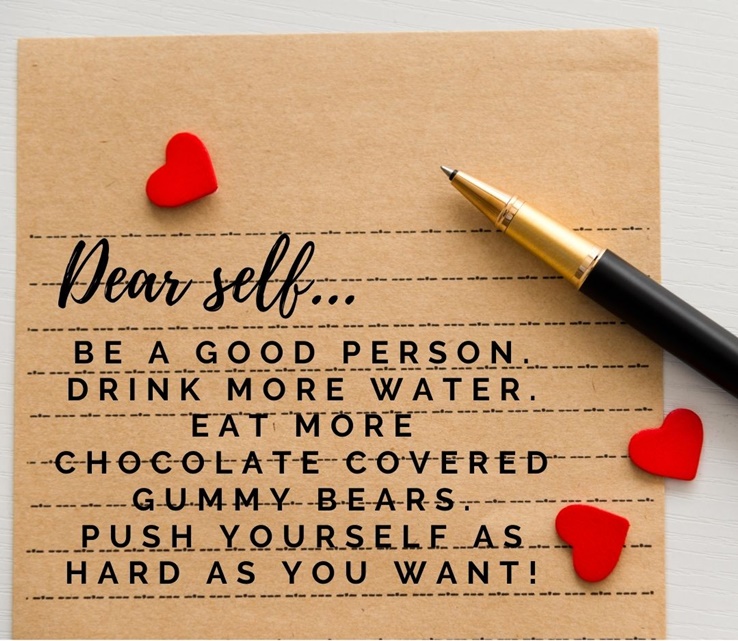 Dear self...
BE A GOOD PERSON.
DRINK MORE WATER.
EAT MORE
CHOCOLATE COVERED
GUMMY BEARS.
PUSH YOURSELF AS
HARD AS YOU WANT!